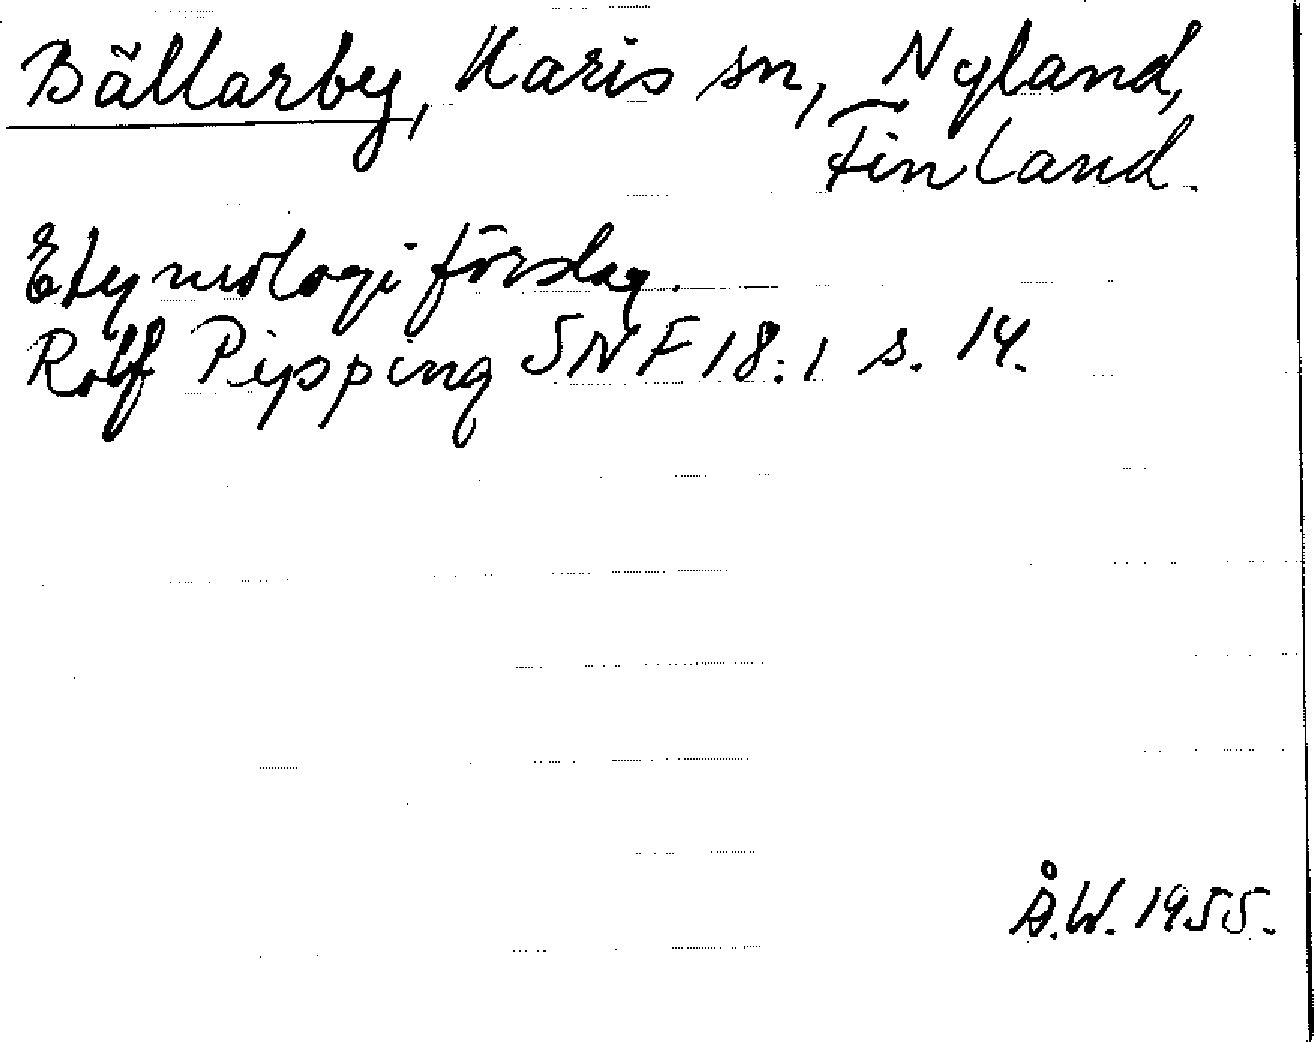 Bällarby, Karis sn, Nyland,
Finland.
Etymologiförslag.
Rolf Pipping SNF 18:1 s. 14.
Å.W. 1955.